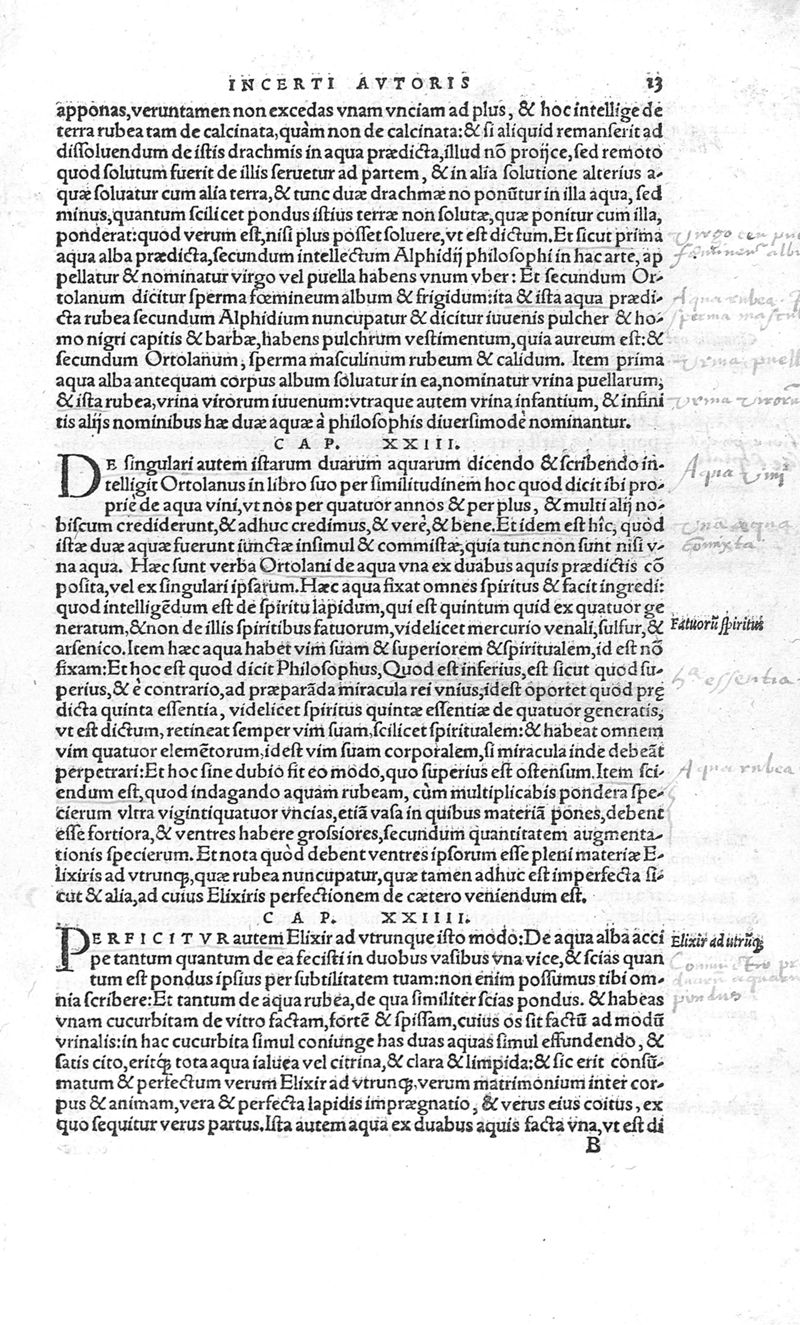 INCERTI AVTORIS 13
apponas, veruntamen non excedas vnam vnciam ad plus, & hoc intellige de
terra rubea tam de calcinata, quàm non de calcinata: & si aliquid remanserit ad
dissoluendum de istis drachmis in aqua prædicta, illud nõ proijce, sed remoto
quod solutum fuerit de illis seruetur ad partem, & in alia solutione alterius a-
quæ soluatur cum alia terra, & tunc duæ drachmæ no ponũtur in illa aqua, sed
minus, quantum scilicet pondus istius terræ non solutæ, quæ ponitur cum illa,
ponderat: quod verum est, nisi plus posset soluere, vt est dictum. Et sicut prima
aqua alba prædicta, secundum intellectum Alphidij philosophi in hac arte, ap
pellatur & nominatur virgo vel puella habens vnum vber: Et secundum Or-
tolanum dicitur sperma fœmineum album & frigidum: ita & ista aqua prædi-
cta rubea secundum Alphidium nuncupatur & dicitur iuuenis pulcher & ho-
mo nigri capitis & barbæ, habens pulchrum vestimentum, quia aureum est: &
secundum Ortolanum, sperma masculinum rubeum & calidum. Item prima
aqua alba antequam corpus album soluatur in ea, nominatur vrina puellarum,
& ista rubea, vrina virorum iuuenum: vtraque autem vrina infantium, & infini
tis alijs nominibus hæ duæ aquæ à philosophis diuersimodè nominantur.
CAP. XXIII.
DE singulari autem istarum duarum aquarum dicendo & scribendo in-
telligit Ortolanus in libro suo per similitudinem hoc quod dicit ibi pro-
priè de aqua vini, vt nos per quatuor annos & per plus, & multi alij no-
biscum crediderunt, & adhuc credimus, & verè, & bene. Et idem est hîc, quòd
istæ duæ aquæ fuerunt iunctæ insimul & commistæ, quia tunc non sunt nisi v-
na aqua. Hæc sunt verba Ortolani de aqua vna ex duabus aquis prædictis cõ
posita, vel ex singulari ipsarum. Hæc aqua fixat omnes spiritus & facit ingredi:
quod intelligẽdum est de spiritu lapidum, qui est quintum quid ex quatuor ge
neratum, & non de illis spiritibus fatuorum, videlicet mercurio venali, sulfur, &
arsenico. Item hæc aqua habet vim suam & superiorem & spiritualem, id est nõ
fixam: Et hoc est quod dicit Philosophus, Quod est inferius, est sicut quod su-
perius, & è contrario, ad præparãda miracula rei vnius, idest oportet quòd prę
dicta quinta essentia, videlicet spiritus quintæ essentiæ de quatuor generatis,
vt est dictum, retineat semper vim suam, scilicet spiritualem: & habeat omnem
vim quatuor elemẽtorum, idest vim suam corporalem, si miracula inde debeãt
perpetrari: Et hoc sine dubio fit eo modo, quo superius est ostensum. Item sci-
endum est, quod indagando aquam rubeam, cùm multiplicabis pondera spe-
cierum vltra vigintiquatuor vncias, etiã vasa in quibus materiã pones, debent
esse fortiora, & ventres habere grossiores, secundum quantitatem augmenta-
tionis specierum. Et nota quòd debent ventres ipsorum esse pleni materiæ E-
lixiris ad vtrunq;, quæ rubea nuncupatur, quæ tamen adhuc est imperfecta si-
cut & alia, ad cuius Elixiris perfectionem de cætero veniendum est.
CAP. XXIIII.
PERFICITVR autem Elixir ad vtrunque isto modo: De aqua alba acci
pe tantum quantum de ea fecisti in duobus vasibus vna vice, & scias quan
tum est pondus ipsius per subtilitatem tuam: non enim possumus tibi om-
nia scribere: Et tantum de aqua rubea, de qua similiter scias pondus. & habeas
vnam cucurbitam de vitro factam, fortẽ & spissam, cuius os sit factũ ad modũ
vrinalis: in hac cucurbita simul coniunge has duas aquas simul effundendo, &
satis cito, eritq; tota aqua ialuea vel citrina, & clara & limpida: & sic erit consũ-
matum & perfectum verum Elixir ad vtrunq;, verum matrimonium inter cor-
pus & animam, vera & perfecta lapidis imprægnatio, & verus eius coitus, ex
quo sequitur verus partus. Ista autem aqua ex duabus aquis facta vna, vt est di
B
Aqua rubea
Aqua vini
Vna aqua
Fatuorũ spiritus
essentia
Aqua rubea
Elixir ad utrũq;
pondus